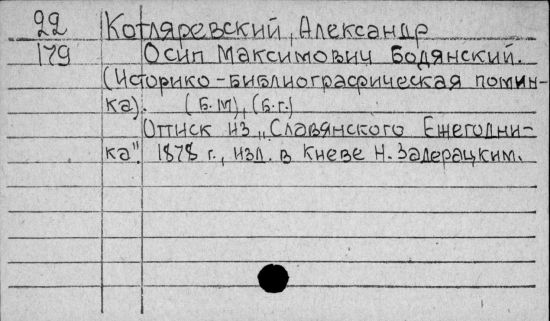 22 Котляревский, Александр
179 Осип Максимович Бодянский.
(Историко-библиографическая помин-
ка). (Б.М), (Б.г.)
Оттиск из „Славянского Ежегодни-
ка" 1878 г., изд. в Киеве Н. Задерацким.